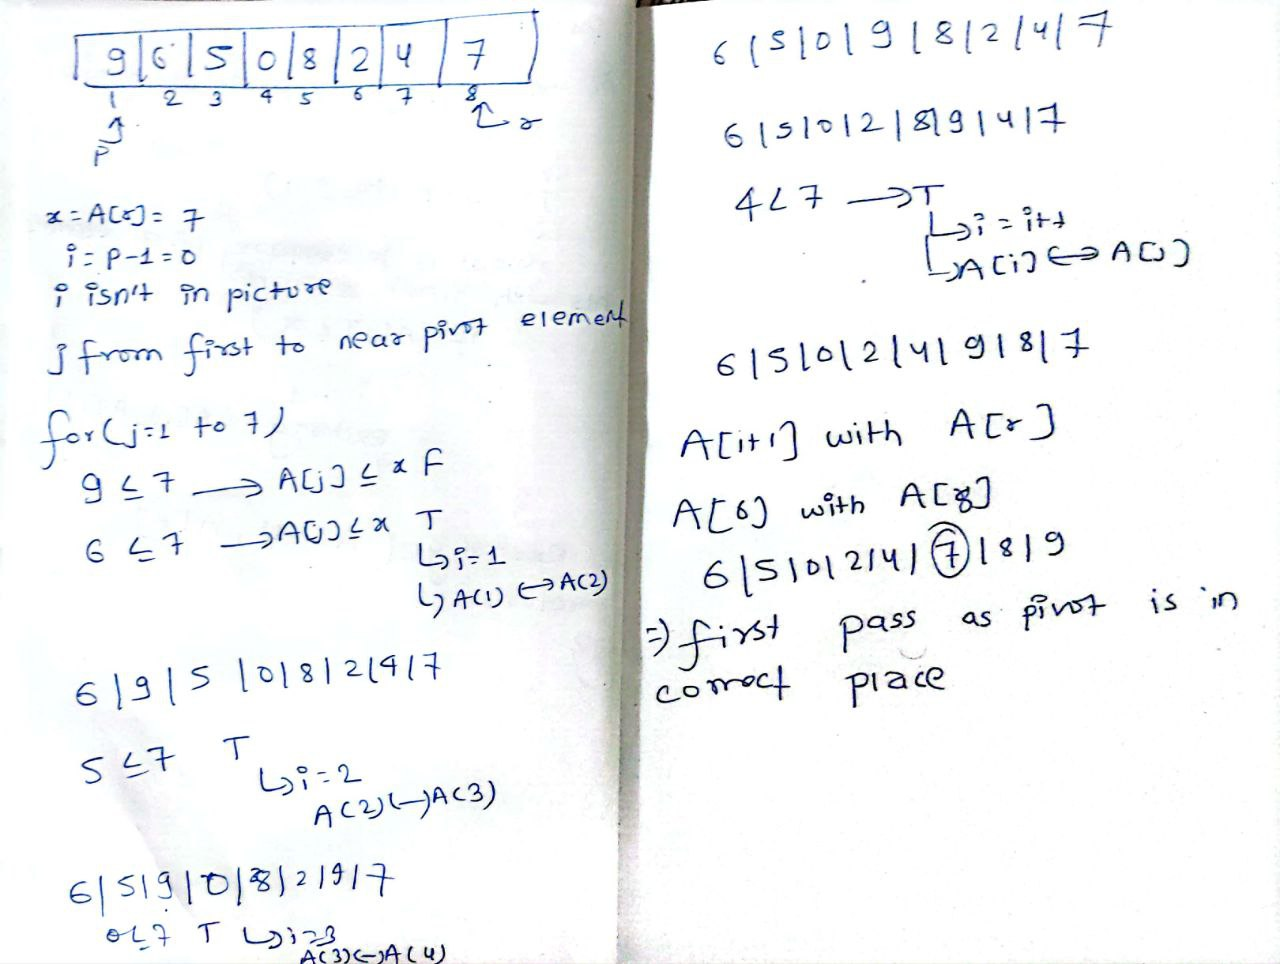 9 | 6 | 5 | 0 | 8 | 2 | 4 | 7
1 2 3 4 5 6 7 8
p r
x = A[r] = 7
i = p-1 = 0
i isn't in picture
j from first to near pivot element
for(j=1 to 7)
9 ≤ 7 → A[j] ≤ x F
6 ≤ 7 → A[j] ≤ x T
↳ i=1
↳ A(1) ↔ A(2)
6 | 9 | 5 | 0 | 8 | 2 | 4 | 7
5 ≤ 7 T
↳ i=2
A(2) ↔ A(3)
6 | 5 | 9 | 0 | 8 | 2 | 9 | 7
0 ≤ 7 T ↳ i=3
A(3) ↔ A(4)
6 | 5 | 0 | 9 | 8 | 2 | 4 | 7
6 | 5 | 0 | 2 | 8 | 9 | 4 | 7
4 < 7 → T
↳ i = i++
↳ A[i] ↔ A[j]
6 | 5 | 0 | 2 | 4 | 9 | 8 | 7
A[i+1] with A[r]
A[6] with A[8]
6 | 5 | 0 | 2 | 4 | 7 | 8 | 9
⇒ first pass as pivot is in
correct place